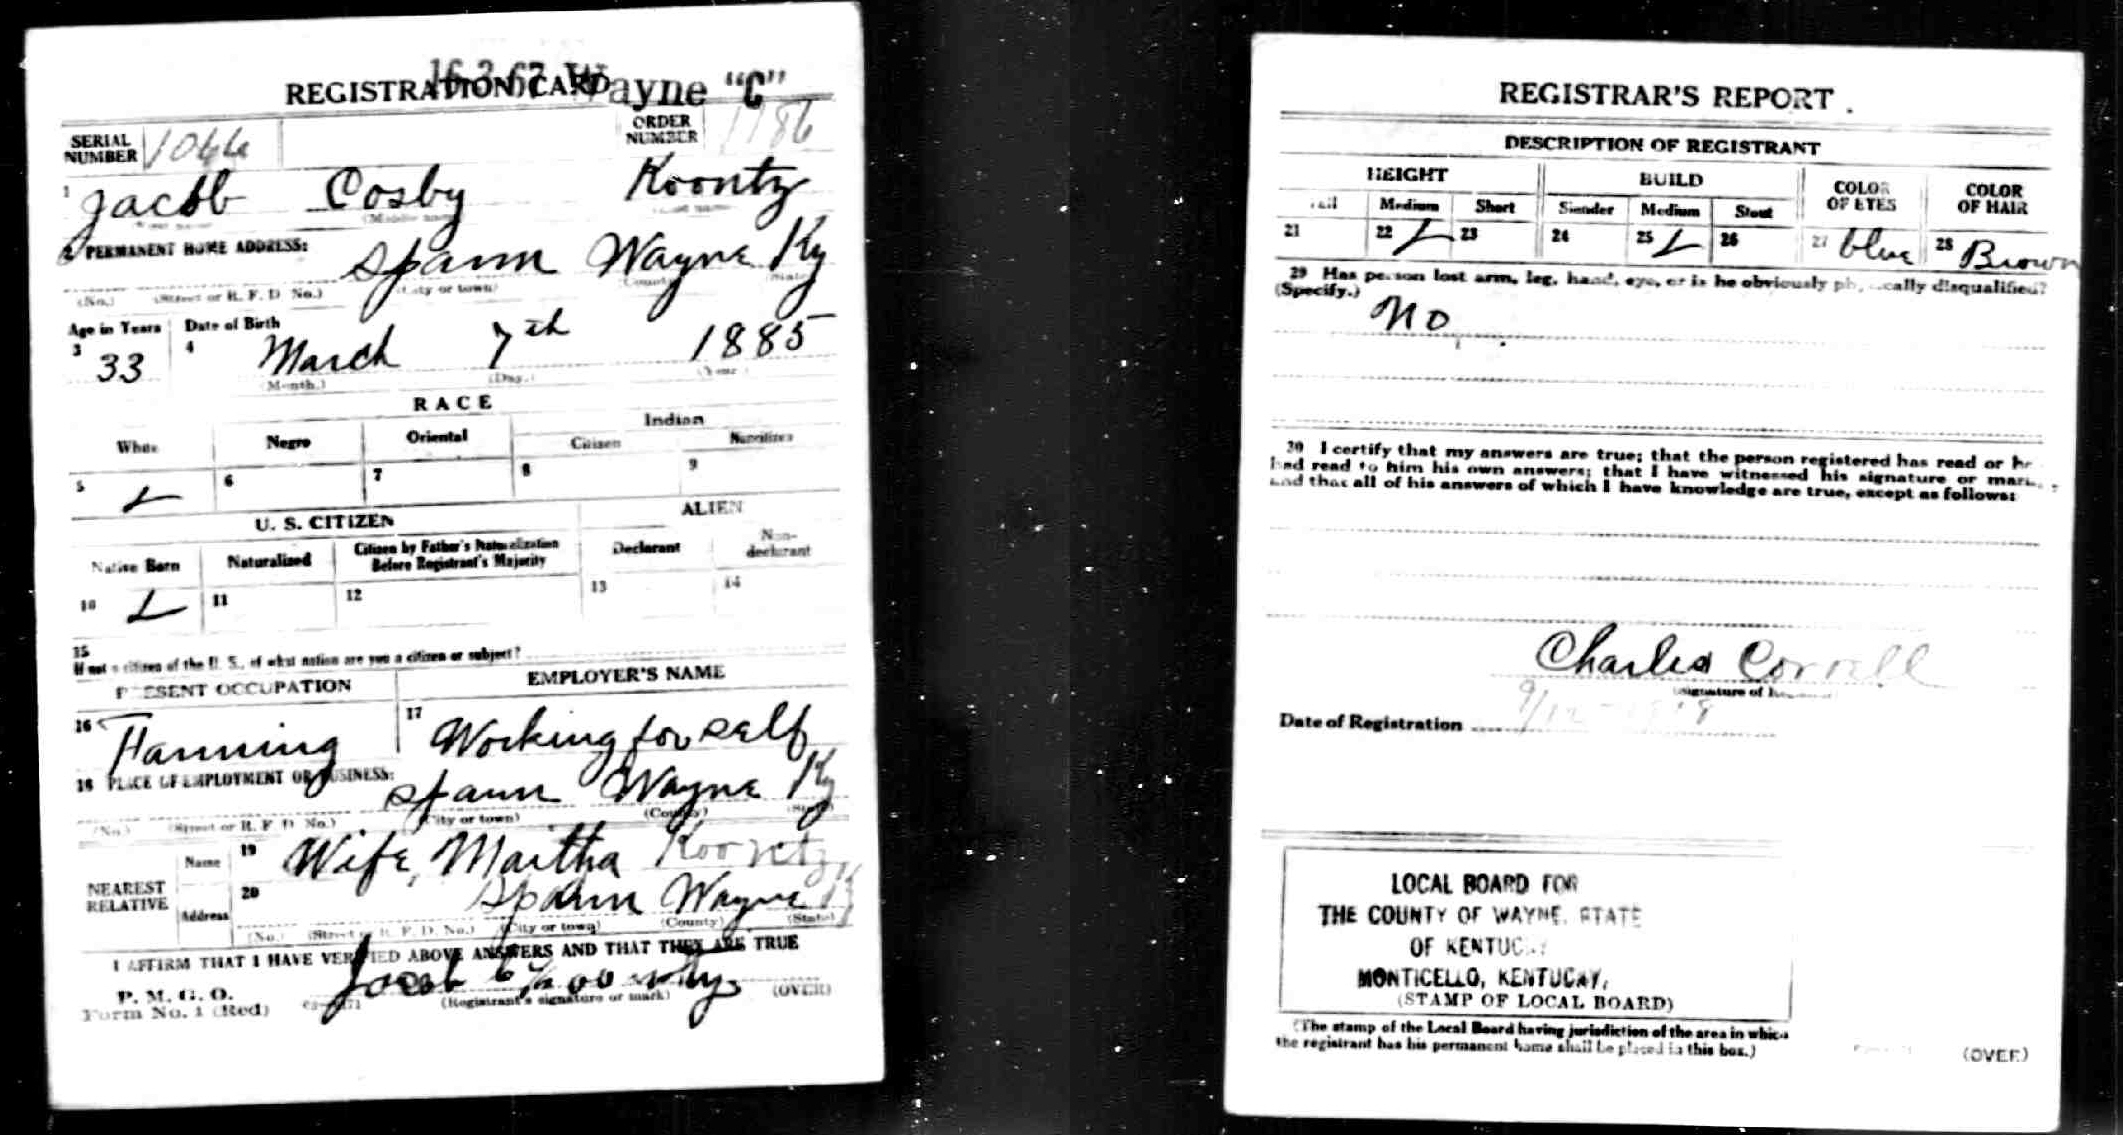 REGISTRATION CARD
16-3-67 Wayne "C"
SERIAL NUMBER 1066 ORDER NUMBER 1186
1 Jacob Cosby Koontz
(Middle name)
2 PERMANENT HOME ADDRESS:
Spann Wayne Ky
(No.) (Street or R. F. D. No.) (City or town) (County) (State)
Age in Years Date of Birth
3 33 4 March 7th 1885
(Month.) (Day.) (Year.)
RACE
White Negro Oriental Indian
Citizen Noncitizen
5 6 7 8 9
U. S. CITIZEN ALIEN
Native Born Naturalized Citizen by Father's Naturalization Before Registrant's Majority Declarant Non-declarant
10 11 12 13 14
15
If not a citizen of the U. S., of what nation are you a citizen or subject?
PRESENT OCCUPATION EMPLOYER'S NAME
16 Farming 17 Working for self
18 PLACE OF EMPLOYMENT OR BUSINESS:
Spann Wayne Ky
(No.) (Street or R. F. D. No.) (City or town) (County) (State)
NEAREST RELATIVE Name 19 Wife, Martha Koontz
Address 20 Spann Wayne Ky
(No.) (Street or R. F. D. No.) (City or town) (County) (State)
I AFFIRM THAT I HAVE VERIFIED ABOVE ANSWERS AND THAT THEY ARE TRUE
P. M. G. O.
Form No. 1 (Red) Jacob C Koontz
(Registrant's signature or mark) (OVER)
REGISTRAR'S REPORT
DESCRIPTION OF REGISTRANT
HEIGHT BUILD COLOR OF EYES COLOR OF HAIR
Tall Medium Short Slender Medium Stout
21 22 23 24 25 26 27 blue 28 Brown
29 Has person lost arm, leg, hand, eye, or is he obviously physically disqualified?
(Specify.) no
30 I certify that my answers are true; that the person registered has read or has
had read to him his own answers; that I have witnessed his signature or mark,
and that all of his answers of which I have knowledge are true, except as follows:
Charles Correll
(Signature of Registrar)
Date of Registration 9/12-1918
LOCAL BOARD FOR
THE COUNTY OF WAYNE, STATE
OF KENTUCKY
MONTICELLO, KENTUCKY,
(STAMP OF LOCAL BOARD)
(The stamp of the Local Board having jurisdiction of the area in which
the registrant has his permanent home shall be placed in this box.)
(OVER)